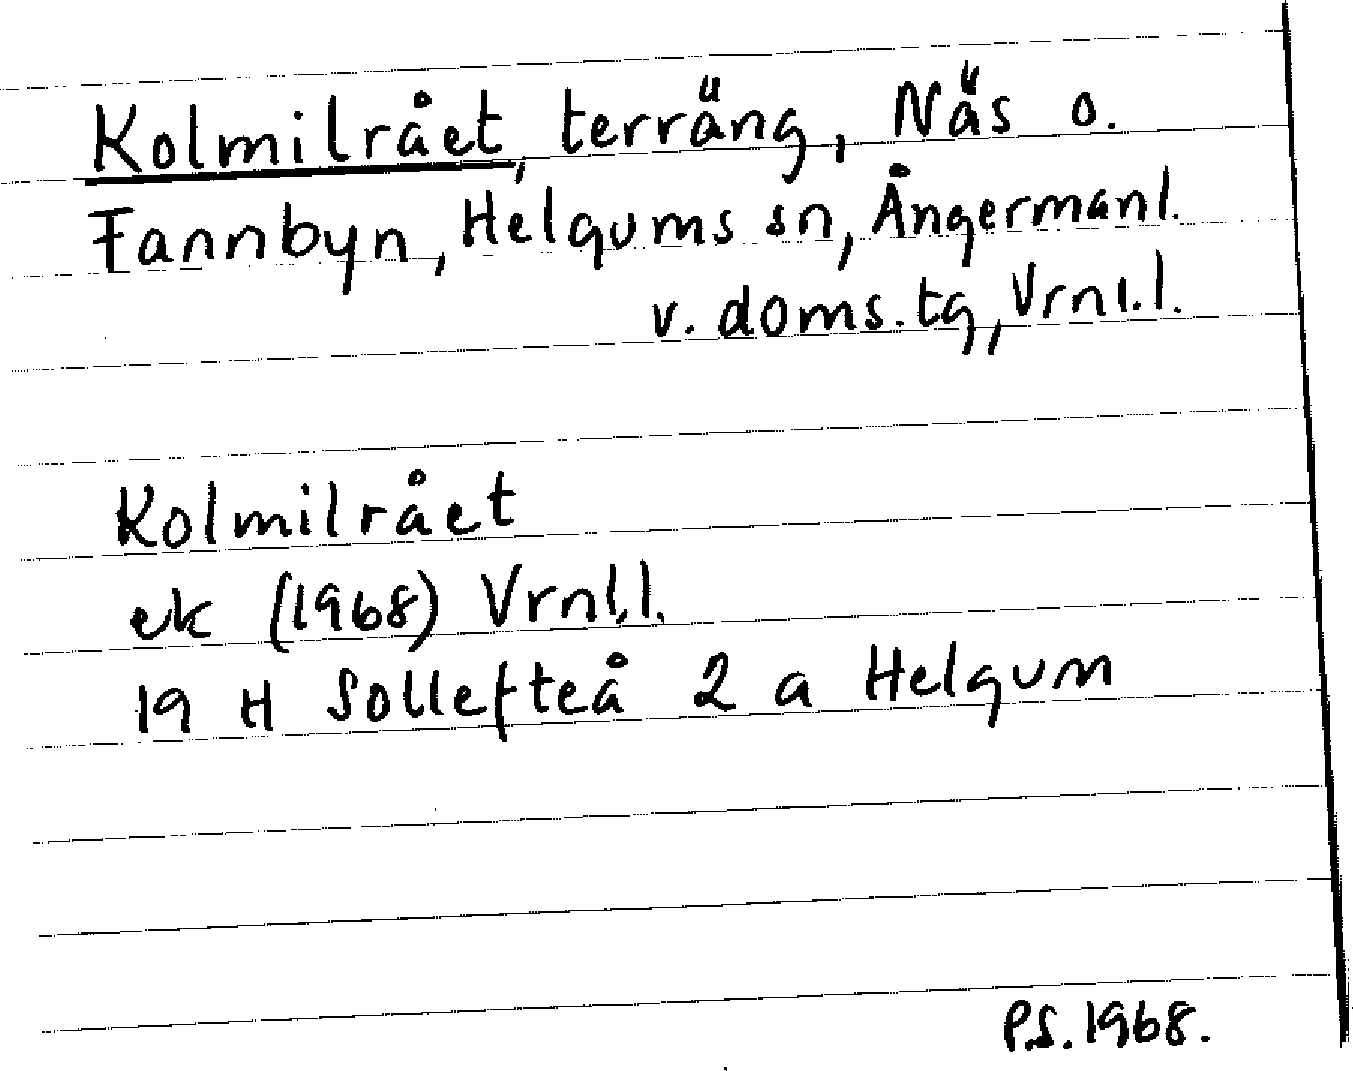 Kolmilrået, terräng, Näs o.
Fannbyn, Helgums sn, Ångermanl.
v. doms. tg, Vrnl. l.
Kolmilrået
ek (1968) Vrnl. l.
19 H Sollefteå 2 a Helgum
P.S. 1968.